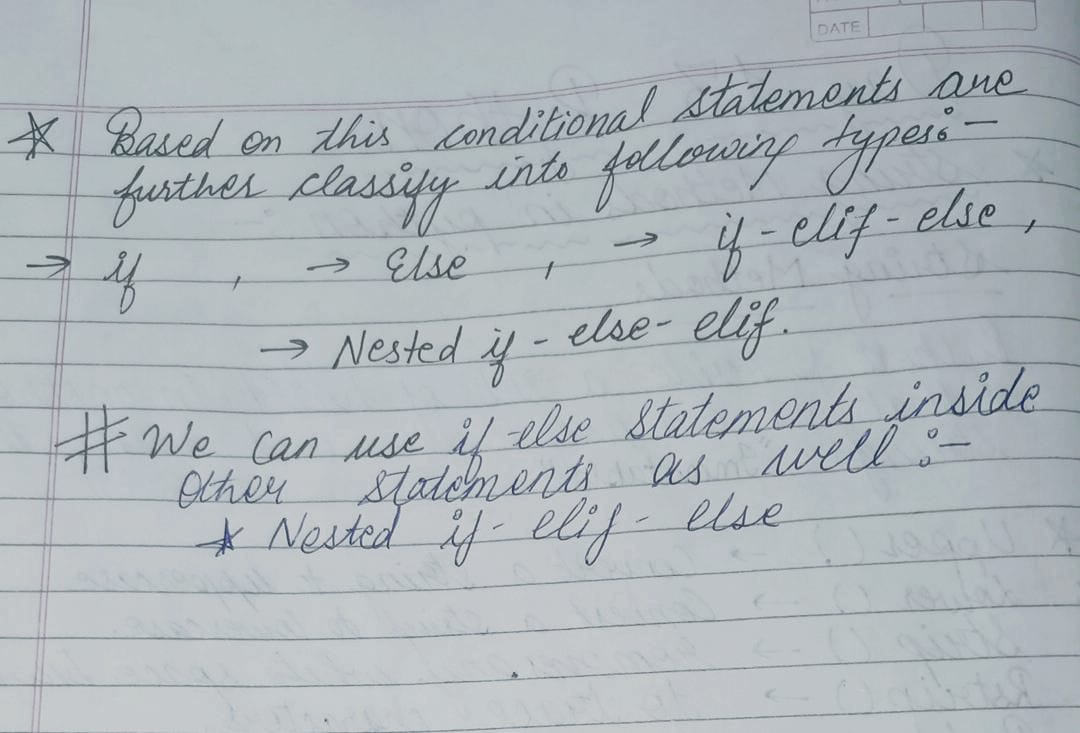 DATE
☆ Based on this conditional statements are
further classify into following types:-
→ if , → Else , → if-elif-else ,
→ Nested if-else-elif.
# We can use if-else statements inside
Other statements as well :-
☆ Nested if-elif-else